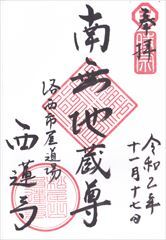 奉拝
令和乙年
十一月十七日
南無地蔵尊
洛西市屋道場
西蓮寺